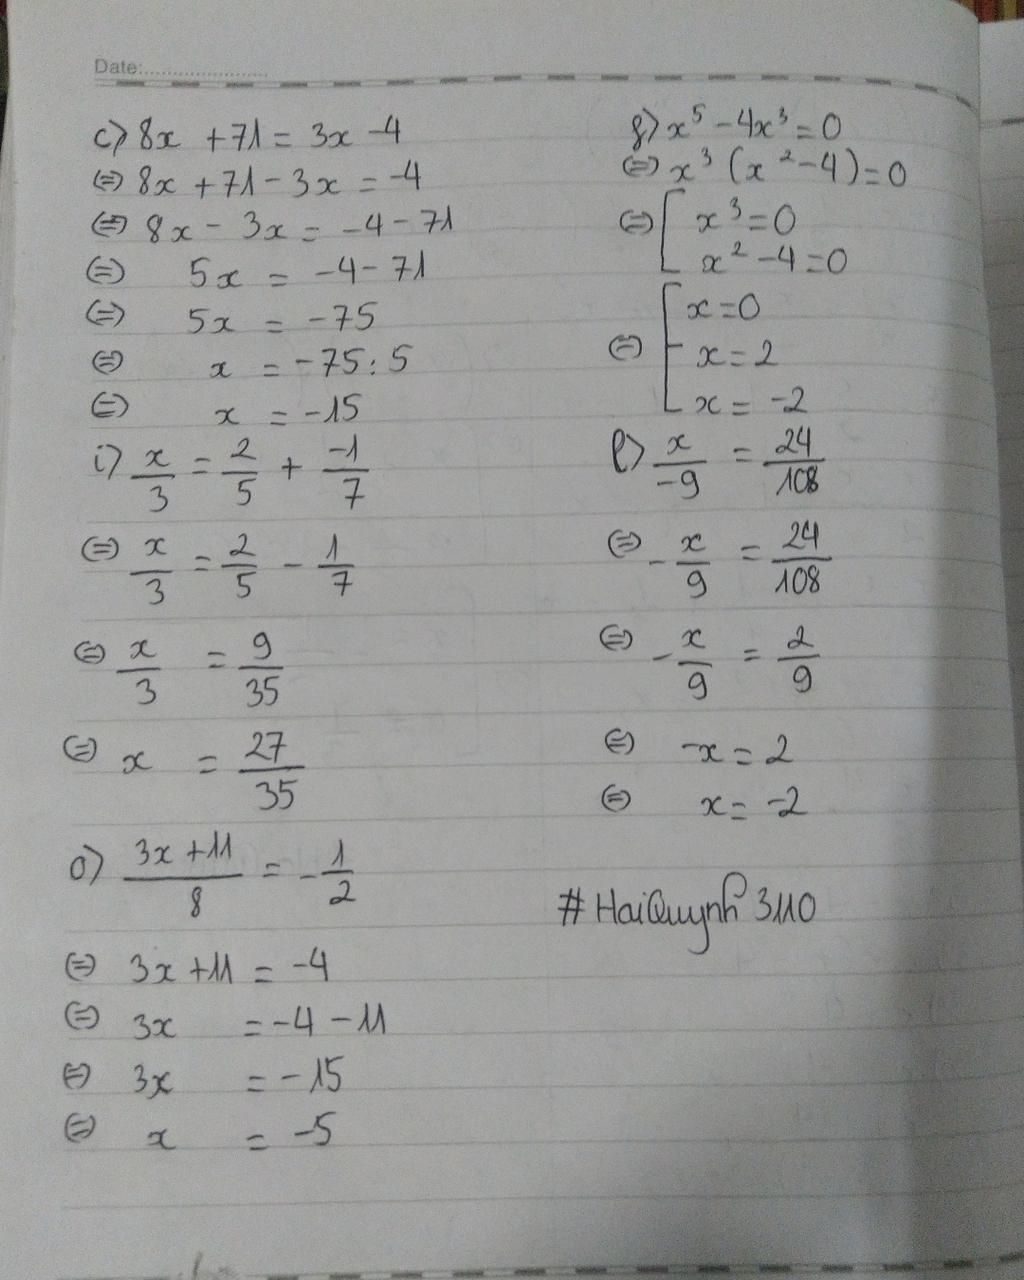 Date:
c) 8x + 71 = 3x - 4
(=) 8x + 71 - 3x = -4
(=) 8x - 3x = -4 - 71
(=) 5x = -4 - 71
(=) 5x = -75
(=) x = -75 : 5
(=) x = -15
i) x/3 = 2/5 + -1/7
(=) x/3 = 2/5 - 1/7
(=) x/3 = 9/35
(=) x = 27/35
o) 3x + 11/8 = -1/2
(=) 3x + 11 = -4
(=) 3x = -4 - 11
(=) 3x = -15
(=) x = -5
f) x⁵ - 4x³ = 0
(=) x³ (x² - 4) = 0
(=) [ x³ = 0
x² - 4 = 0
[ x = 0
(=) x = 2
x = -2
l) x/-9 = 24/108
(=) -x/9 = 24/108
(=) -x/9 = 2/9
(=) -x = 2
(=) x = -2
# HaiQuynh 3110